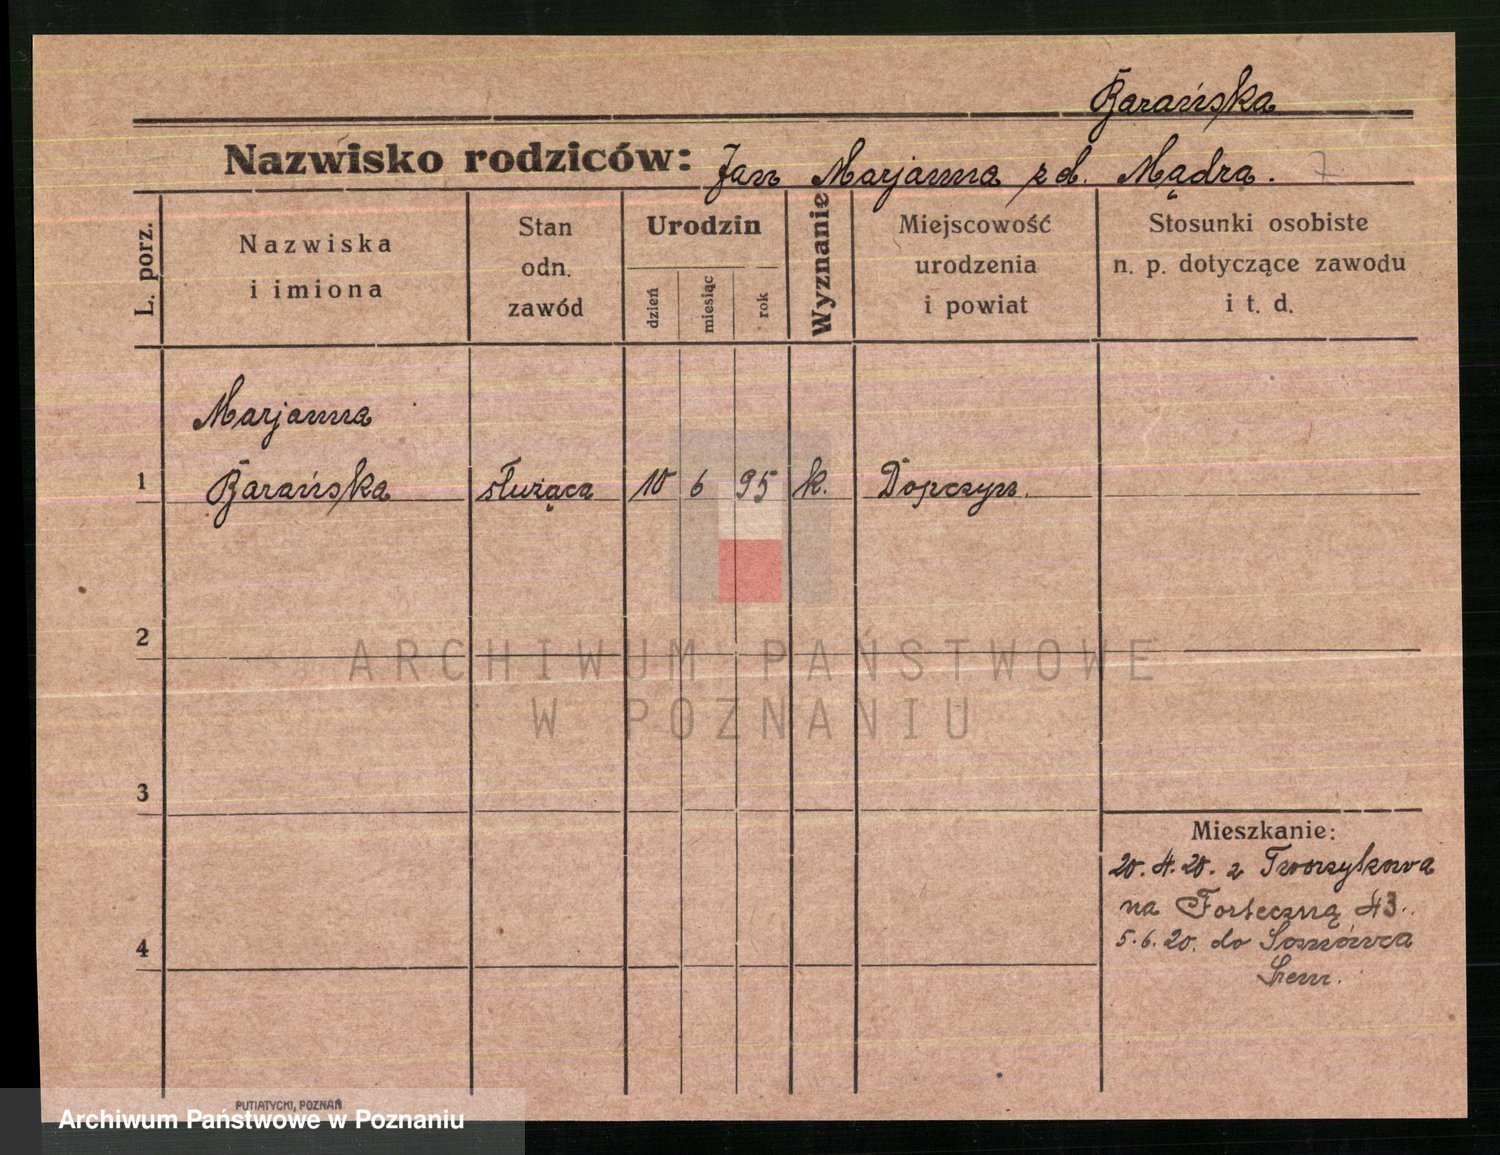 Barańska
Nazwisko rodziców: Jan Marjanna z d. Mądra.
L. porz.
Nazwiska
i imiona
Stan
odn.
zawód
Urodzin
dzień
miesiąc
rok
Wyznanie
Miejscowość
urodzenia
i powiat
Stosunki osobiste
n. p. dotyczące zawodu
i t. d.
Marjanna
1 Barańska służąca 10 6 95 k. Dopczyn.
2
ARCHIWUM PAŃSTWOWE
W POZNANIU
3
Mieszkanie:
20. 4. 20. z Tworzykowa
na Forteczną 43.
4
5. 6. 20. do
PUTIATYCKI, POZNAŃ
Archiwum Państwowe w Poznaniu